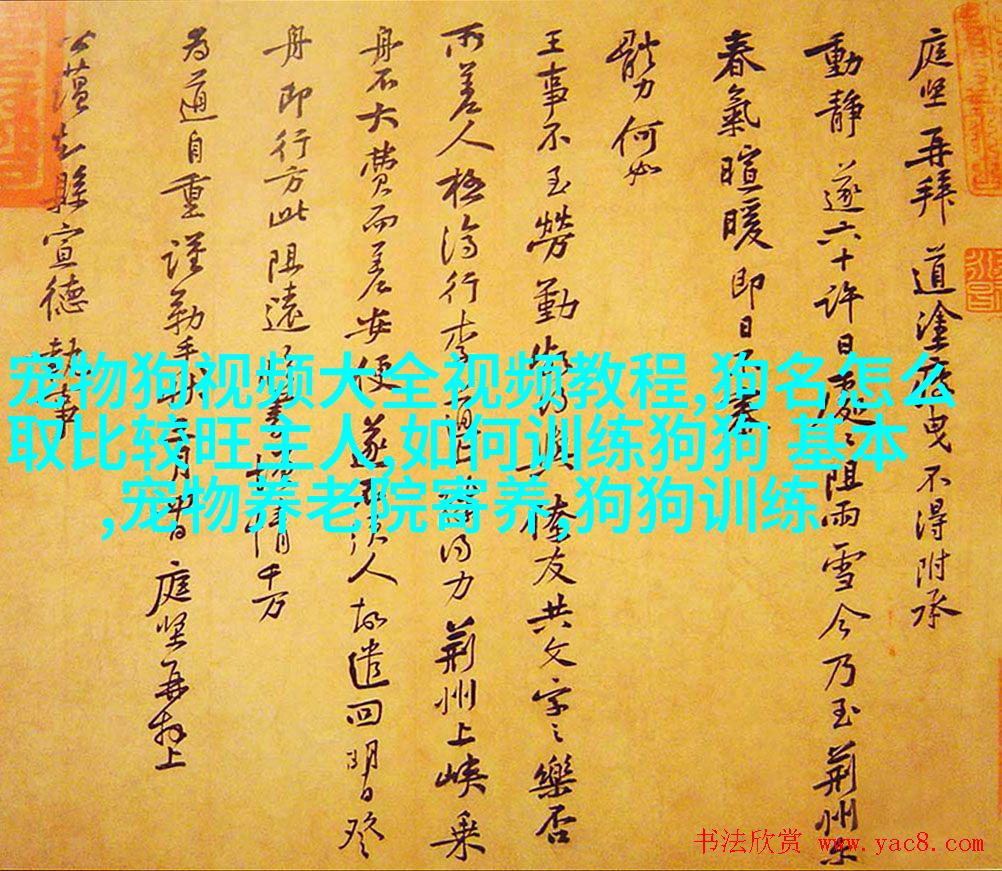 庭坚再拜 道塗曳不得附承
動静 遂六十许日阻雨雪今乃至荆州
春氣暄暖即日
體力何如
王事不至勞勤友共文字之樂否
所差人極濟行李得力荆州上峡乘
舟不大费而差安便遂人故遣回明日登
舟即行方此阻遠情千万
为道自重謹勒手月庭坚再拜上
知縣宣德執事
宠物狗视频大全视频教程,狗名怎么
取比较旺主人,如何训练狗狗 基本
,宠物养老院寄养,狗狗训练
书法欣赏 www.yac8.com